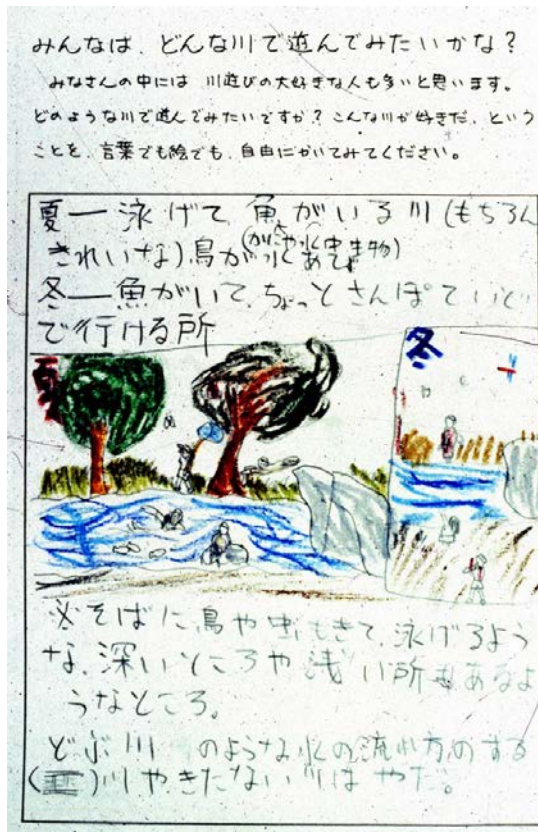 みんなは、どんな川で遊んでみたいかな？
みなさんの中には 川遊びの大好きな人も多いと思います。
どのような川で遊んでみたいですか？こんな川が好きだ、という
ことを、言葉でも絵でも、自由にかいてみてください。
夏ー泳げて、魚がいる川(もちろん
きれいな)鳥が水あび
(かにや水中生物)
冬ー魚がいて、ちょっとさんぽていど
で行ける所
夏
冬
※そばに鳥や虫もきて、泳げるよう
な、深いところや浅い所もあるよ
うなところ。
どぶ川 のような水の流れ方のする
川やきたない川はやだ。